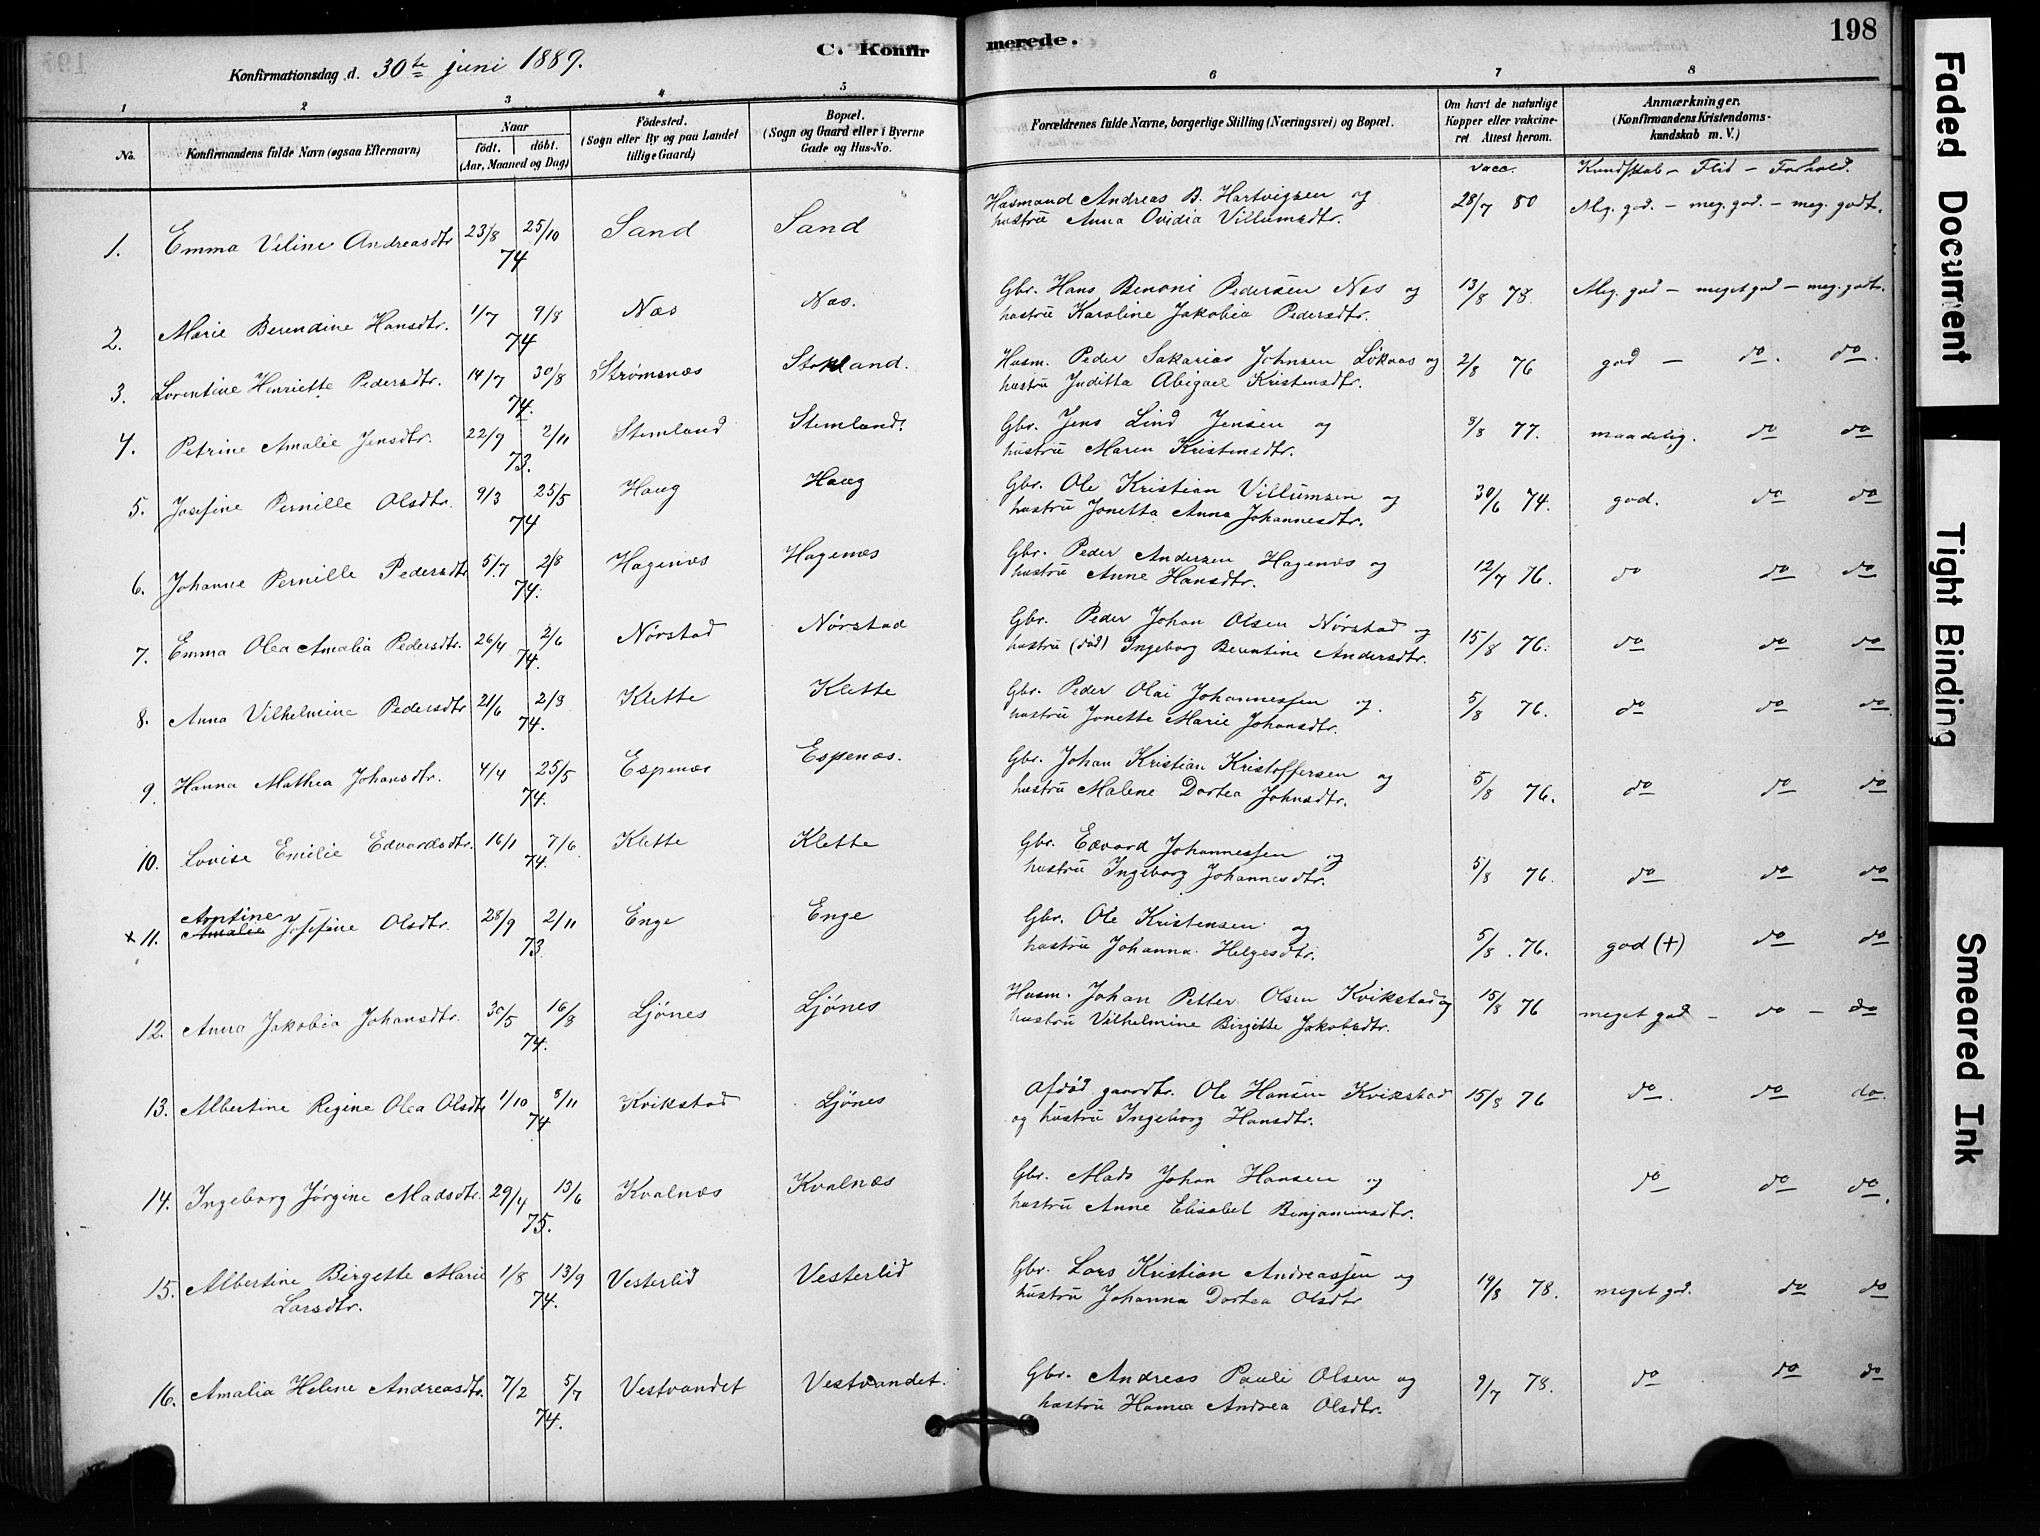 198
C. Konfirmerede.
Konfirmationsdag d. 30te juni 1889.
1 2 3 4 5 6 7 8
No. Konfirmandens fulde Navn (ogsaa Efternavn) Naar födt. döbt. (Aar, Maaned og Dag) Födested. (Sogn eller By og paa Landet tillige Gaard) Bopæl. (Sogn og Gaard eller i Byerne Gade og Hus-No. Forældrenes fulde Navne, borgerlige Stilling (Næringsvei) og Bopæl. Om havt de naturlige Kopper eller vakcineret Attest herom. Anmærkninger. (Konfirmandens Kristendomskundskab m. V.)
vacc. Kundskab – Flid – Forhold.
1. Emma Veline Andreasdtr 23/8 25/10 74 Sand Sand Husmand Andreas B. Hartvigsen og 28/7 80 Meg. god. – meg. god. – meg. godt.
hustru Anna Ovidia Villumsdtr.
2. Marie Berendine Hansdtr. 1/7 9/8 74 Næs Næs. Gbr. Hans Benoni Pedersen Næs og 13/8 78. Meg. god – meget god – meg. godt.
hustru Karoline Jakobia Pedersdtr.
3. Lorentine Henriette Pedersdtr. 14/7 30/8 74. Strømsnæs Stokland. Husm. Peder Sakarias Johnsen Løkaas og 2/8 76 god – do. do.
hustru Juditta Abigael Kristensdtr.
4. Petrine Amalie Jensdtr. 22/9 2/11 73. Stemland Stemland. Gbr. Jens Lind Jensen og 8/8 77. maadelig. do do
hustru Maren Kristensdtr.
5. Josefine Pernille Olsdtr. 9/3 25/5 74 Haug Haug Gbr. Ole Kristian Villumsen og 30/6 74. god. do do
hustru Jonetta Anna Johannesdtr.
6. Johanne Pernille Pedersdtr 5/7 2/8 74. Hagenæs Hagenæs Gbr. Peder Andersen Hagenæs og 12/7 76. do do do
hustru Anne Hansdtr.
7. Emma Olea Amalia Pedersdtr. 26/4 2/6 74. Nørstad Nørstad Gbr. Peder Johan Olsen Nørstad og 15/8 76. do do do
hustru (död) Ingeborg Berentine Andersdtr.
8. Anna Vilhelmine Pedersdtr 21/6 2/8 74. Klette Klette Gbr. Peder Olai Johannessen og. 5/8 76. do do do.
hustru Jonette Marie Johansdtr.
9. Hanna Mathea Johansdtr. 4/4 25/5 74. Espenæs Espenæs. Gbr. Johan Kristian Kristoffersen og 5/8 76. do do do
hustru Malene Dortea Johnsdtr.
10. Lovise Emilie Edvardsdtr. 16/1 7/6 74. Klette Klette Gbr. Edvard Johannessen og 5/8 76. do do do
hustru Ingeborg Johannesdtr.
Arntine
x 11. Amalie Josefine Olsdtr. 28/9 2/11 73 Enge Enge Gbr. Ole Kristensen og 5/8. 76. god (+) do do
hustru Johanna Helgesdtr.
12. Anna Jakobia Johansdtr. 30/5 16/8 74. Ljönes Ljönes Husm. Johan Petter Olsen Kvikstad og 15/8 76 meget god – do – do
hustru Vilhelmine Birgitte Jakobsdtr.
13. Albertine Regine Olea Olsdtr 1/10 8/11 74 Kvikstad Ljönes Afdöd gaardbr. Ole Hansen Kvikstad 15/8 76 do. do do.
og hustru Ingeborg Hansdtr.
14. Ingeborg Jørgine Madsdtr. 29/4 13/6 75. Kvalnæs Kvalnæs Gbr. Mads Johan Hansen og do do do.
hustru Anne Elisabet Benjaminsdtr.
15. Albertine Birgette Marie 1/8 13/9 74. Vesterlid Vesterlid Gbr. Lars Kristian Andreassen og 19/8 78. meget god. do do
Larsdtr. hustru Johanna Dortea Olsdtr
16. Amalia Helene Andreasdtr. 7/2 5/7 74. Vestvandet Vestvandet. Gbr. Andreas Pauli Olsen og 9/7 78. do do do
hustru Hanna Andrea Olsdtr.
Faded Document
Tight Binding
Smeared Ink